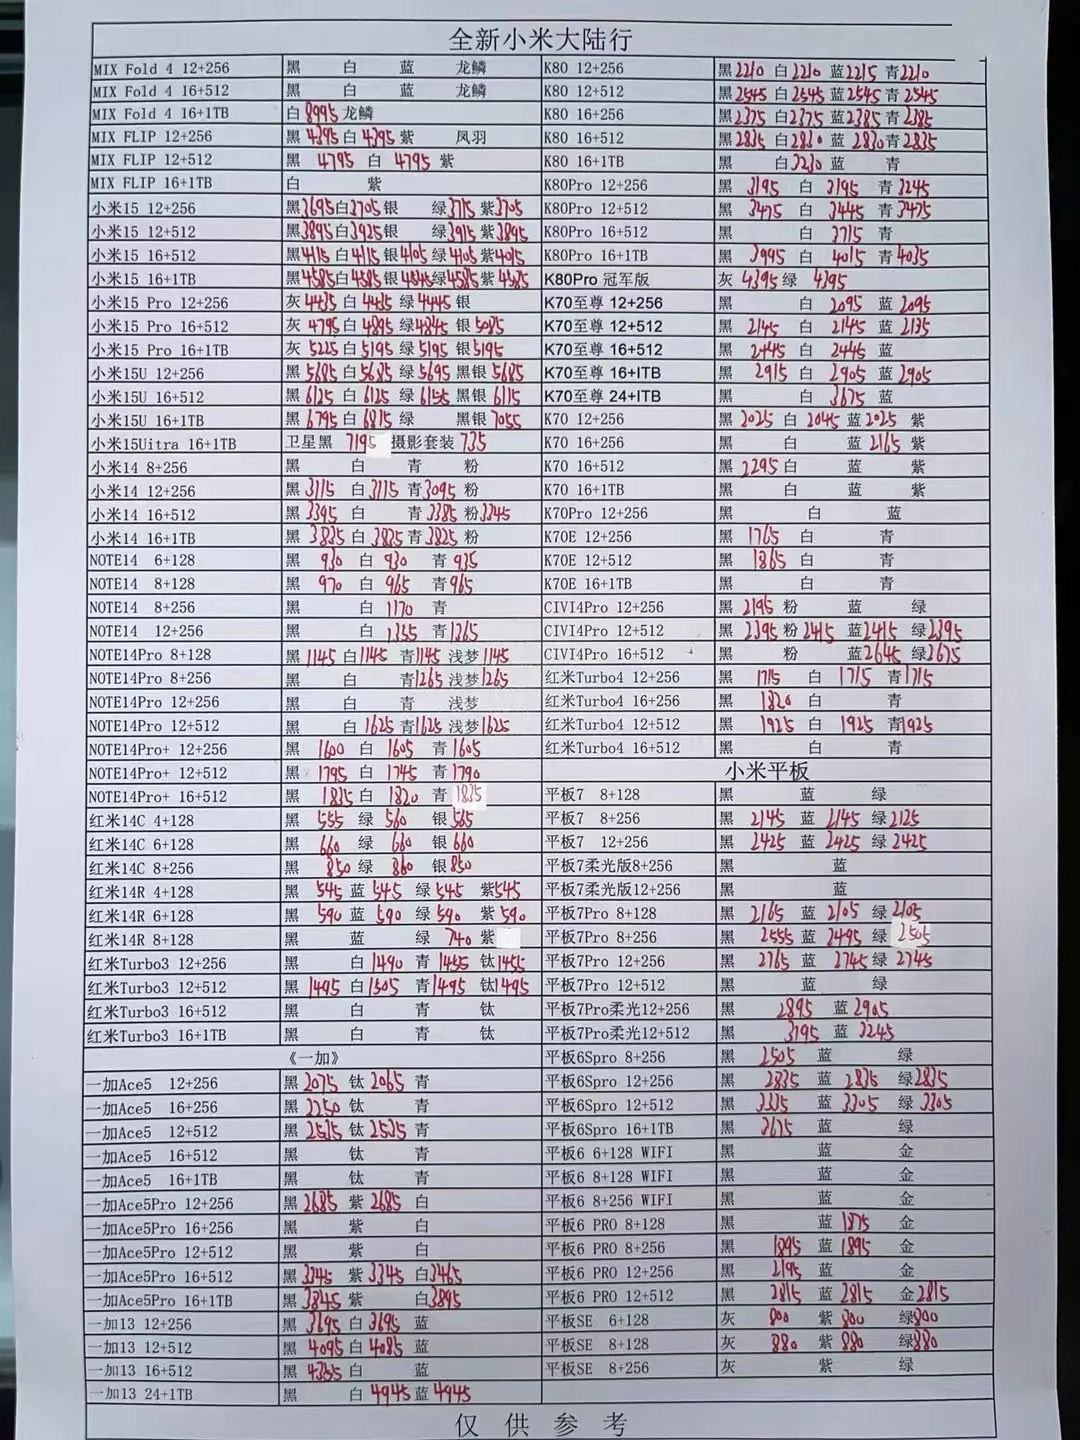 全新小米大陆行
MIX Fold 4 12+256 黑 白 蓝 龙鳞 K80 12+256 黑2210 白2210 蓝2215 青2210
MIX Fold 4 16+512 黑 白 蓝 龙鳞 K80 12+512 黑2545 白2545 蓝2545 青2545
MIX Fold 4 16+1TB 白8995 龙鳞 K80 16+256 黑2375 白2375 蓝2385 青2385
MIX FLIP 12+256 黑4395 白4395 紫 凤羽 K80 16+512 黑2835 白2830 蓝2830 青2835
MIX FLIP 12+512 黑 4795 白 4795 紫 K80 16+1TB 黑 白3230 蓝 青
MIX FLIP 16+1TB 白 紫 K80Pro 12+256 黑 3195 白 3195 青3245
小米15 12+256 黑3695 白3705 银 绿3715 紫3705 K80Pro 12+512 黑 3475 白 3445 青3475
小米15 12+512 黑3895 白3925 银 绿3915 紫3895 K80Pro 16+512 黑 白 3715 青
小米15 16+512 黑4115 白4115 银4105 绿4105 紫4015 K80Pro 16+1TB 黑 3995 白 4015 青4035
小米15 16+1TB 黑4585 白4585 银 绿4585 紫4585 K80Pro 冠军版 灰 4395 绿 4395
小米15 Pro 12+256 灰 4435 白 4435 绿4445 银 K70至尊 12+256 黑 白 2095 蓝 2095
小米15 Pro 16+512 灰 4795 白 4895 绿4845 银 5085 K70至尊 12+512 黑 2145 白 2145 蓝 2135
小米15 Pro 16+1TB 灰 5225 白 5195 绿 5195 银5195 K70至尊 16+512 黑 2445 白 2445 蓝
小米15U 12+256 黑 5685 白 5685 绿 5695 黑银 5685 K70至尊 16+ITB 黑 2915 白 2905 蓝 2905
小米15U 16+512 黑 6125 白 6125 绿 6155 黑银 6115 K70至尊 24+ITB 黑 白 3675 蓝
小米15U 16+1TB 黑 6795 白 6815 绿 黑银 7055 K70 12+256 黑 2025 白 2045 蓝 2025 紫
小米15Uitra 16+1TB 卫星黑 7195 摄影套装 735 K70 16+256 黑 白 蓝 2165 紫
小米14 8+256 黑 白 青 粉 K70 16+512 黑 2295 白 蓝 紫
小米14 12+256 黑 3115 白 3115 青 3095 粉 K70 16+1TB 黑 白 蓝 紫
小米14 16+512 黑 3395 白 青 3385 粉 3345 K70Pro 12+256 黑 白 蓝
小米14 16+1TB 黑 3835 白 3825 青 3825 粉 K70E 12+256 黑 1765 白 青
NOTE14 6+128 黑 930 白 930 青 935 K70E 12+512 黑 1865 白 青
NOTE14 8+128 黑 970 白 965 青 965 K70E 16+1TB 黑 白 青
NOTE14 8+256 黑 白 1170 青 CIVI4Pro 12+256 黑 2195 粉 蓝 绿
NOTE14 12+256 黑 白 1355 青 1365 CIVI4Pro 12+512 黑 2395 粉 2415 蓝2415 绿2395
NOTE14Pro 8+128 黑 1145 白 1145 青1145 浅梦 1145 CIVI4Pro 16+512 黑 粉 蓝2645 绿2675
NOTE14Pro 8+256 黑 白 青1265 浅梦1265 红米Turbo4 12+256 黑 1715 白 1715 青1715
NOTE14Pro 12+256 黑 白 青 浅梦 红米Turbo4 16+256 黑 1820 白 青
NOTE14Pro 12+512 黑 白 1625 青1625 浅梦1625 红米Turbo4 12+512 黑 1925 白 1925 青1925
NOTE14Pro+ 12+256 黑 1600 白 1605 青 1605 红米Turbo4 16+512 黑 白 青
NOTE14Pro+ 12+512 黑 1795 白 1745 青 1790 小米平板
NOTE14Pro+ 16+512 黑 1835 白 1820 青 1835 平板7 8+128 黑 蓝 绿
红米14C 4+128 黑 555 绿 560 银 565 平板7 8+256 黑 2145 蓝 2145 绿 2125
红米14C 6+128 黑 660 绿 660 银 660 平板7 12+256 黑 2425 蓝 2425 绿 2425
红米14C 8+256 黑 850 绿 860 银 850 平板7柔光版8+256 黑 蓝
红米14R 4+128 黑 545 蓝 545 绿 545 紫545 平板7柔光版12+256 黑 蓝
红米14R 6+128 黑 590 蓝 590 绿 590 紫 590 平板7Pro 8+128 黑 2165 蓝 2105 绿 2105
红米14R 8+128 黑 蓝 绿 740 紫 平板7Pro 8+256 黑 2555 蓝 2495 绿 2505
红米Turbo3 12+256 黑 白 1490 青 1455 钛1455 平板7Pro 12+256 黑 2765 蓝 2745 绿 2745
红米Turbo3 12+512 黑 1495 白 1505 青1495 钛1495 平板7Pro 12+512 黑 蓝 绿
红米Turbo3 16+512 黑 白 青 钛 平板7Pro柔光12+256 黑 2895 蓝 2905
红米Turbo3 16+1TB 黑 白 青 钛 平板7Pro柔光12+512 黑 3195 蓝 3245
《一加》 平板6Spro 8+256 黑 2505 蓝 绿
一加Ace5 12+256 黑 2075 钛 2065 青 平板6Spro 12+256 黑 2835 蓝 2835 绿2835
一加Ace5 16+256 黑 2250 钛 青 平板6Spro 12+512 黑 3335 蓝 3305 绿 3305
一加Ace5 12+512 黑 2535 钛 2535 青 平板6Spro 16+1TB 黑 3675 蓝 绿
一加Ace5 16+512 黑 钛 青 平板6 6+128 WIFI 黑 蓝 金
一加Ace5 16+1TB 黑 钛 青 平板6 8+128 WIFI 黑 蓝 金
一加Ace5Pro 12+256 黑 2685 紫 2685 白 平板6 8+256 WIFI 黑 蓝 金
一加Ace5Pro 16+256 黑 紫 白 平板6 PRO 8+128 黑 蓝 1875 金
一加Ace5Pro 12+512 黑 紫 白 平板6 PRO 8+256 黑 1895 蓝 1895 金
一加Ace5Pro 16+512 黑 3345 紫 3345 白3465 平板6 PRO 12+256 黑 2195 蓝 金
一加Ace5Pro 16+1TB 黑 3845 紫 白3895 平板6 PRO 12+512 黑 2815 蓝 2815 金2815
一加13 12+256 黑 3695 白 3695 蓝 平板SE 6+128 灰 800 紫 800 绿800
一加13 12+512 黑 4095 白 4085 蓝 平板SE 8+128 灰 880 紫 880 绿880
一加13 16+512 黑 4355 白 蓝 平板SE 8+256 灰 紫 绿
一加13 24+1TB 黑 白 4945 蓝 4945
仅供参考